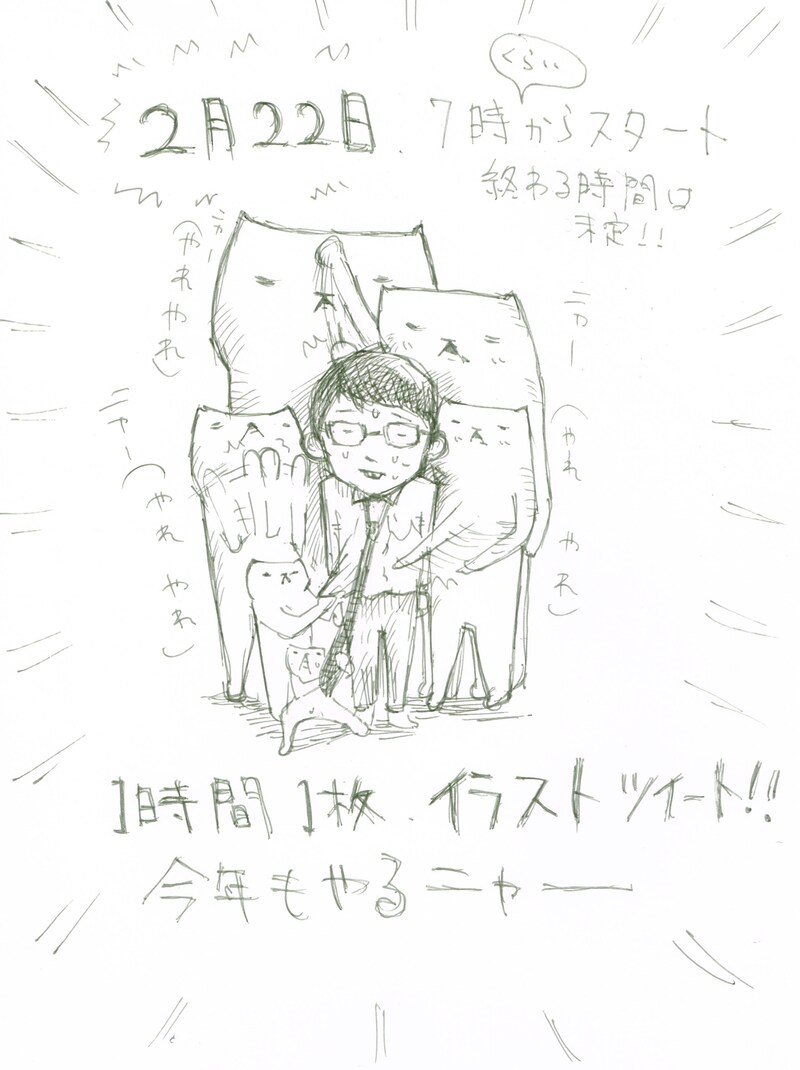 2月22日.
7時からスタート
くらい
終わる時間は
未定!!
ニャー
(やれやれ)
ニャー
(やれ
やれ)
ニャー
(やれ
やれ)
1時間1枚.イラストツイート!!
今年もやるニャー